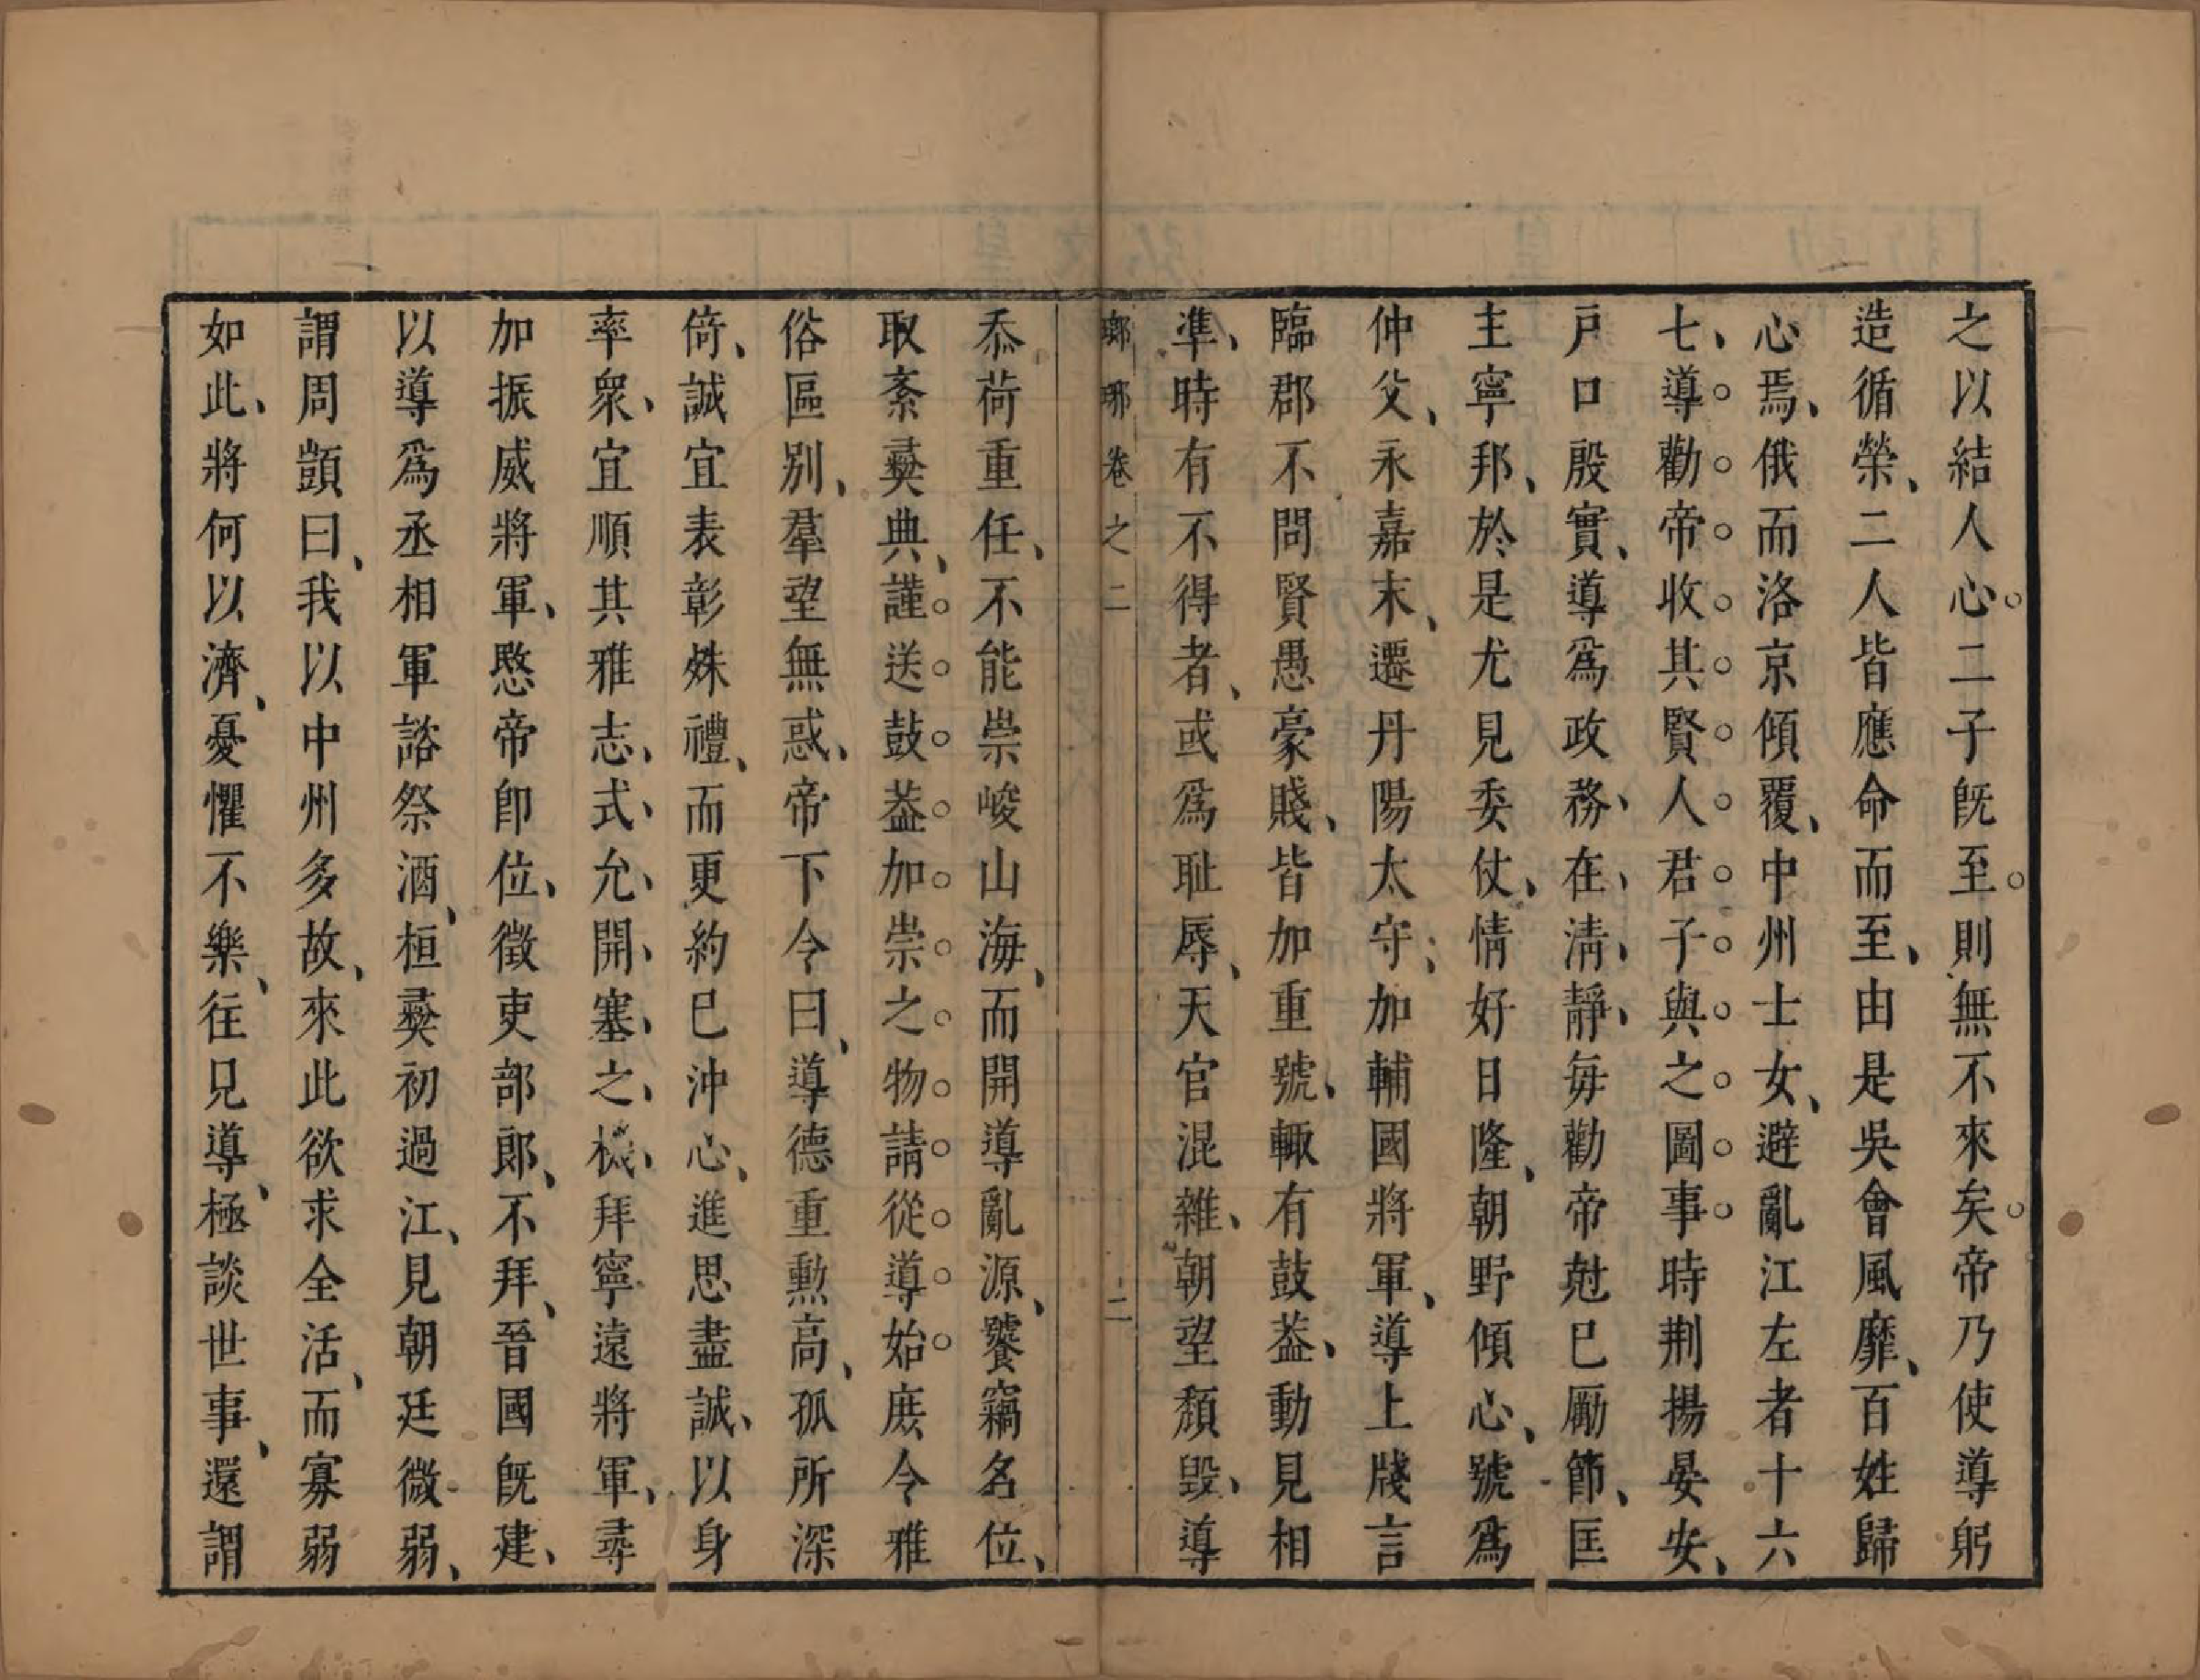 之以結人心二子旣至則無不來矣帝乃使導躬
造循榮二人皆應命而至由是吳會風靡百姓歸
心焉俄而洛京傾覆中州士女避亂江左者十六
七導勸帝收其賢人君子與之圖事時荆揚晏安
戶口殷實導爲政務在淸靜毎勸帝尅巳厲節匡
主寧邦於是尤見委仗情好日隆朝野傾心號爲
仲父永嘉末遷丹陽太守加輔國將軍導上牋言
臨郡不問賢愚豪賤皆加重號輙有鼓葢動見相
凖時有不得者或爲耻辱天官混雜朝望頽毀導
瑯琊卷之二 二
忝荷重任不能崇峻山海而開導亂源饕竊名位
取紊彛典謹送鼓葢加崇之物請從導始庶令雅
俗區別羣望無惑帝下令曰導德重勲高孤所深
倚誠宜表彰殊禮而更約巳沖心進思盡誠以身
率衆宜順其雅志式允開塞之機拜寧遠將軍尋
加振威將軍愍帝卽位徵吏部郎不拜晉國旣建
以導爲丞相軍諮祭酒桓彛初過江見朝廷微弱
謂周顗曰我以中州多故來此欲求全活而寡弱
如此將何以濟憂懼不樂往見導極談世事還謂